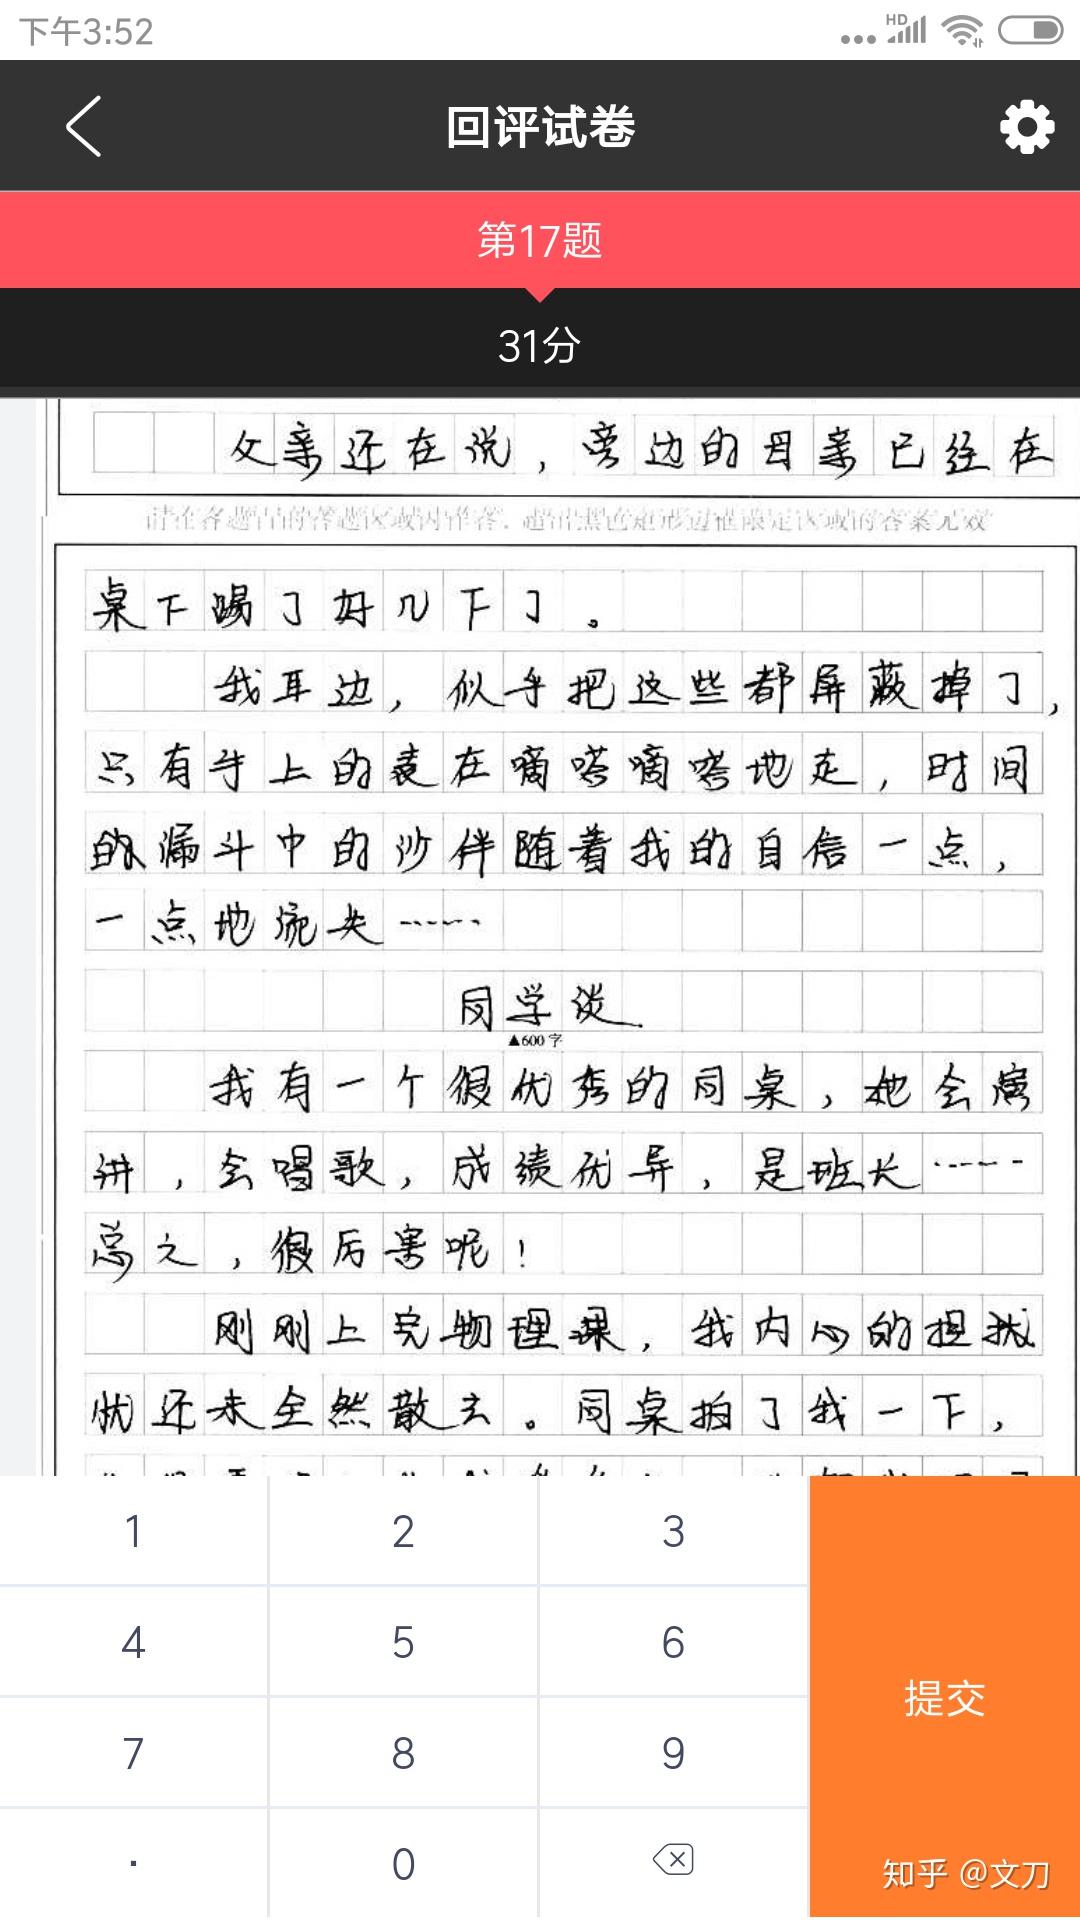 下午3:52
HD
回评试卷
第17题
31分
父亲还在说，旁边的母亲已经在
请在各题目的答题区域内作答，超出黑色矩形边框限定区域的答案无效
桌下踢了好几下了。
我耳边，似乎把这些都屏蔽掉了，
只有手上的表在嘀嗒嘀嗒地走，时间
的漏斗中的沙伴随着我的自信一点，
一点地流失……
同学谈.
▲600字
我有一个很优秀的同桌，她会演
讲，会唱歌，成绩优异，是班长……
总之，很厉害呢！
刚刚上完物理课，我内心的担扰
忧还未全然散去。同桌拍了我一下，
1 2 3
4 5 6
提交
7 8 9
. 0
知乎 @文刀